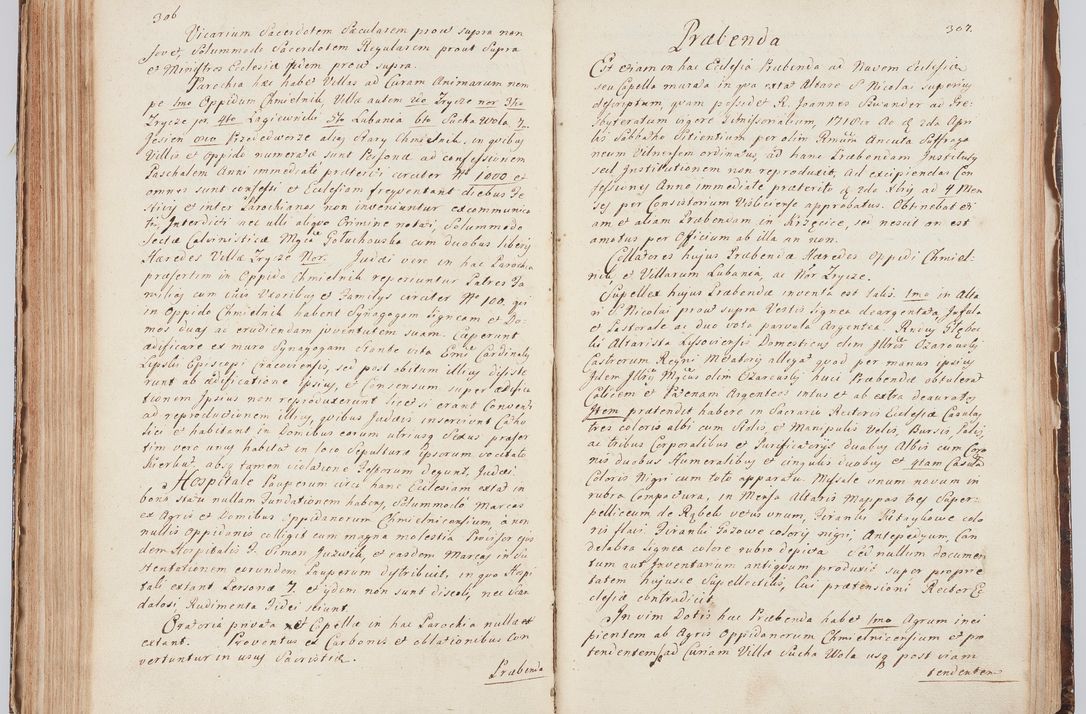 306
Vicarium Sacerdotem Sæcularem prout supra non
fovet, Solummodo Sacerdotem Regularem prout Supra
et Ministros Eclesiæ idem prout supra.
Parochia hæc habet Villas ad Curam Animarum nem
pe 1mo Oppidum Chmielnik, Villa autem 2do Zrycze nor 3tio
Zrycze pr. 4to Łagiewniki 5to Lubania 6to Sucha Wola 7.
Jesien 8vo Przededworze alias Stary Chmielnik, in quibus
Villis et Oppido numeratæ sunt Personæ ad confessionem
Paschalem Anni immediate præteriti circiter No 1000 et
omnes sunt confessi et Eclesiam frequentant diebus Fe
stivis et inter Parochianos non inveniuntur excommunica
ti, Interdicti nec ulli aliquo Crimine notati, Solummodo
Sectæ Calvinisticæ Mgca Gołuchouska cum duobus liberis
Hæredes Villæ Zrycze Nor. Judæi vero in hac Parochia
præsertim in Oppido Chmielnik reperiuntur Patres Fa
milias cum suis Uxoribus et Familys circiter No 100, qui
in Oppido Chmielnik habent Synagogam ligneam et Do
mos duas ac erudiendam juventutem suam. Cæperunt
ædificare ex muro Synagogam stante vita Emi Cardinalis
Lipski Episcopi Cracoviensis, sed post obitum illius desiste
runt ab ædificatione ipsius, et Consensum super ædifica
tionem Ipsius non reproduxerunt licet si erant Conventi
ad reproductionem illius, quibus Judæis inserviunt Catho
lici et habitant in Domibus eorum utriusq Sexus præser
tim vero unus habitat in loco Sepulturæ Ipsorum vocitato
Kierkut, absq tamen violatione Festorum degunt, Judæi
Hospitale Pauperum circa hanc Ecclesiam extat in
bono statu nullam Fundationem habens, Solummodo Marcas
ex Agris et Domibus Oppidanorum Chmielnicensium à non
nullis Oppidanis colligit cum magna molestia Provisor quo
dem Hospitalis F. Simon Juzwik, et easdem Marcas in Su
stentationem eorundem Pauperum distribuit, in quo Hospi
tali extant Personæ 7. et iydem non sunt discoli, nec Scan
dalosi Rudimenta Fidei sciunt.
Oratoria privata et Capellæ in hac Parochia nulla et
extant. Proventus ex Carbonis et oblationibus Con
vertuntur in usus Sacristiæ.
Præbenda
307.
Præbenda
Est etiam in hac Eclesia Præbenda ad Navem Eclesiæ
seu Capella murata in qua extat Altare S Nicolai superius
descriptum, quam possidet R. Joannes Szwander ad Pre
sbyteratum vigore Dimissorialium, 1710. Ao d 2da Apri
lis Sabbatho Sitientium per olim Rmum Ancuta Suffraga
neum Vilnensem ordinatus ad hanc Præbendam Institutus
sed Institutionem non reproduxit, Ad excipiendas Con
fessiones Anno immediate præterito d 2da Xbris ad 4 Men
ses per Consistorium Visliciense approbatus. Obtinebat eti
am et aliam Præbendam in Kiszęcice, sed nescit an est
amotus per Officium ab illa an non.
Collatores hujus Præbendæ Hæredes Oppidi Chmiel
nik et Villarum Lubania, ac Nor Zrycze.
Supellex hujus Præbendæ inventa est talis. 1mo in Alta
ri S Nicolai prout supra Vestis lignea deargentata, Infula
et Pastorale ac duo vota parvula Argentea. Rndus Głębo
ki Altarista Lysoviensis Domesticus olim Illris Ożarouskij
Castrorum Regni Metatoris allegat quod per manus ipsius
Idem Illris Mgcus olim Ożarouskij huic Præbendæ obtulerat
Calicem et Patenam Argenteos intus et ab extra deauratos
Item prætendit habere in Sacrario Rectoris Eclesiæ Casulas
tres coloris albi cum Stolis et Manipulis Velis, Bursis Palis,
ac tribus Corporalibus et Purificatorys duabus Albis cum Coro
nis duobus Humeralibus et cingulis duobus et 4tam Casula
Coloris Nigri cum toto apparatu. Missale unum novum in
rubra Compactura, in Mensa Altaris Mappas tres Super
pelliceum de Rąbek vetus unum, Firanki Kitaykowe colo
ris flavi. Firanki Gazowe coloris nigri, Antepedyum, Can
delabra lignea colore rubro depicta sed nullum documen
tum aut Inventarium antiquum produxit super proprie
tatem hujusce Supellectilis, Cui prætensioni Rector Ec
clesiæ contradicit.
In vim Dotis hæc Præbenda habet 1mo Agrum inci
pientem ab Agris Oppidanorum Chmielnicensium et pro
tendentem ad Curiam Villæ Sucha Wola usq post viam
tendentem